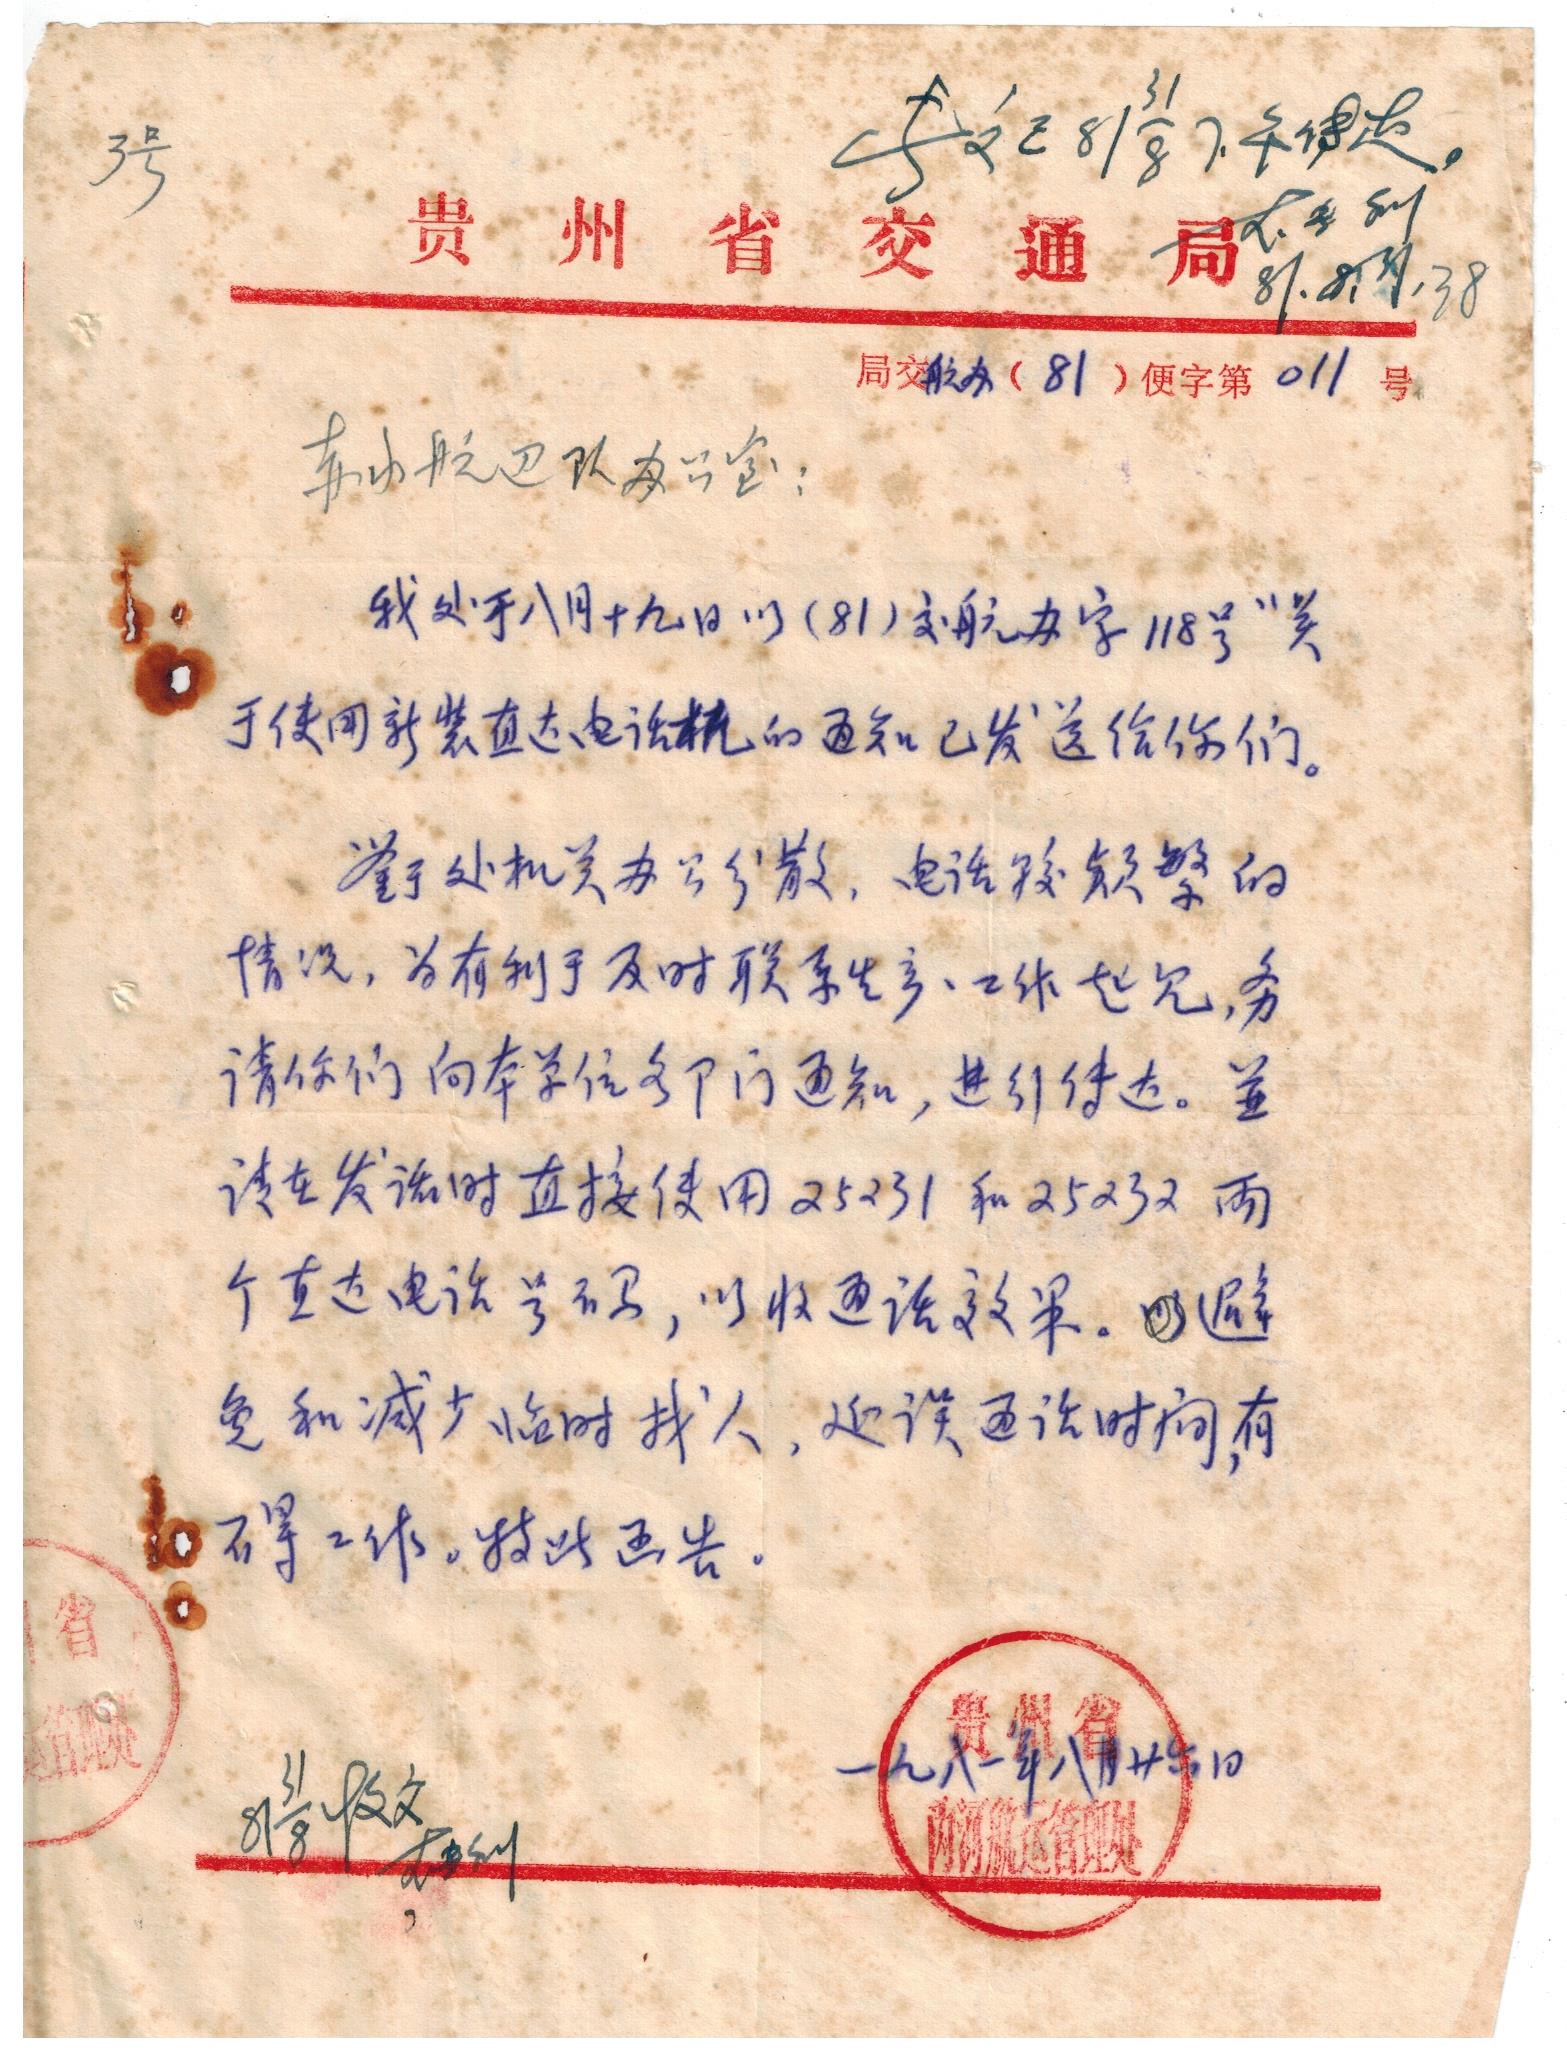 3号
文已81 31/8下午传达。
81.8.31.
38
贵州省交通局
局交航办（81）便字第011号
赤水航运队办公室：
我处于八月十九日以(81)交航办字118号“关
于使用新装直达电话机的通知已发送给你们。
鉴于处机关办公分散，电话较频繁的
情况，为有利于及时联系生产、工作起见，务
请你们向本单位各部门通知，进行传达。並
请在发话时直接使用25231和25232两
个直达电话号码，以收通话效果。以避
免和减少临时找人，延误通话时间，有
碍工作。特此函告。
贵州省
一九八一年八月廿六日
内河航运管理处
省
运管理处
81 31/8收文